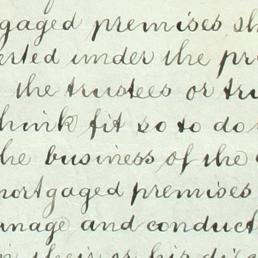 gaged premises sh
erted under the pr
the trustees or tru
think fit so to do
the business of the
mortgaged premises
anage and conduct
in their or his dis